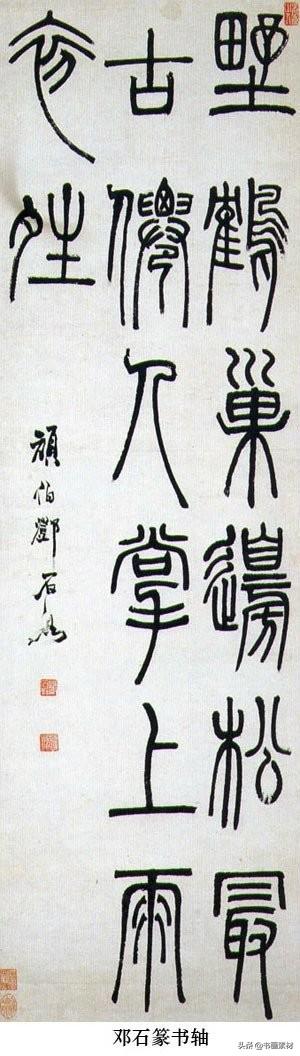 野鶴巢邊松最
古僊人掌上雨
初夝
頑伯鄧石如
邓石篆书轴
头条@书画素材